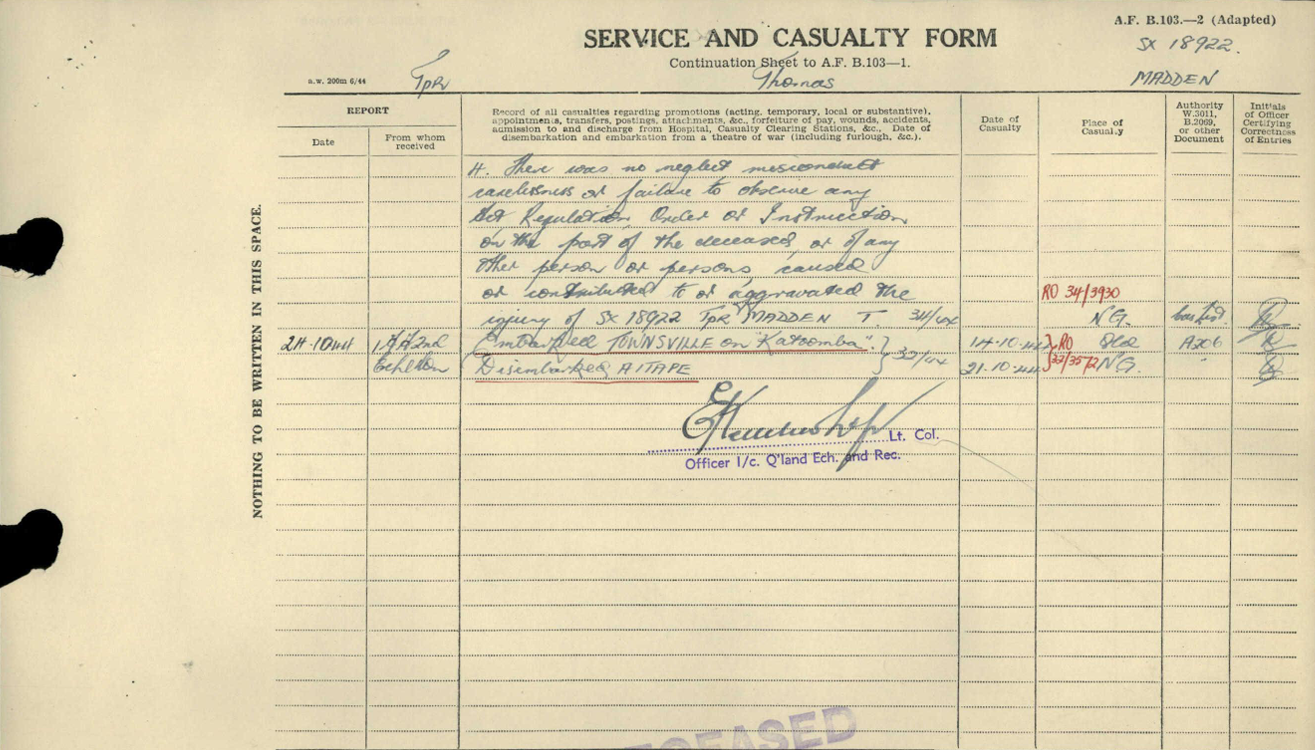 A.F. B.103.—2 (Adapted)
SERVICE AND CASUALTY FORM
SX 18922.
Continuation Sheet to A.F. B.103—1.
a.w. 200m 6/44
Tpr
Thomas
MADDEN
REPORT
Date
From whom received
Record of all casualties regarding promotions (acting, temporary, local or substantive),
appointments, transfers, postings, attachments, &c., forfeiture of pay, wounds, accidents,
admission to and discharge from Hospital, Casualty Clearing Stations, &c., Date of
disembarkation and embarkation from a theatre of war (including furlough, &c.).
Date of
Casualty
Place of
Casualty
Authority
W.3011,
B.2069,
or other
Document
Initials
of Officer
Certifying
Correctness
of Entries
NOTHING TO BE WRITTEN IN THIS SPACE.
4. There was no neglect misconduct
carelessness or failure to observe any
Act Regulation Order or Instruction
on the part of the deceased, or of any
other person or persons, caused
or contributed to or aggravated the
RO 34/3930
injury of SX 18922 Tpr MADDEN T. 34/44
N.G.
24.10.44 Embarked TOWNSVILLE on "Katoomba". 14.10.44 RO Qld A206
Disembarked AITAPE 32/44 21.10.44 33/3572 N.G. "
Lt. Col.
Officer I/c. Q'land Ech. and Rec.